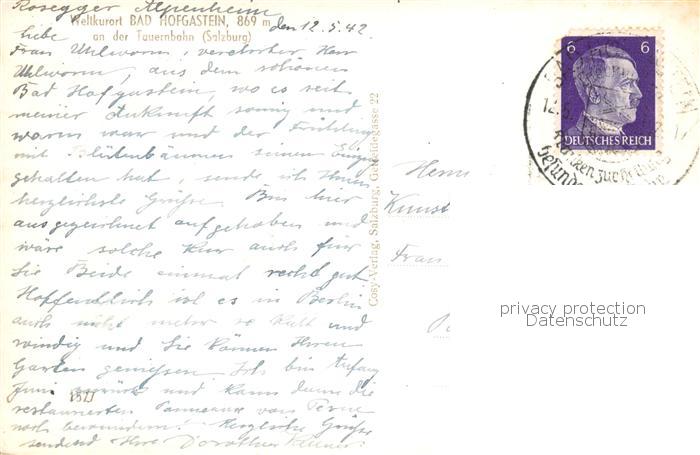 Rosegger Alpenheim
Weltkurort BAD HOFGASTEIN, 869 m
an der Tauernbahn (Salzburg)
den 12.5.42
liebe
Frau Uhlworm, verehrter Herr
Uhlworm, aus dem schönen
Bad Hofgastein, wo es seit
meiner Ankunft sonnig und
warm war und der Frühling
mit Blütenbäumen seinen Einzug
gehalten hat, sende ich Ihnen
herzlichste Grüße. Bin hier
ausgezeichnet aufgehoben und
wäre solche Kur auch für
Sie Beide einmal recht gut
Hoffentlich ist es in Berlin
auch nicht mehr so kalt und
windig und Sie können Ihren
Garten genießen. Ich bin Anfang
Juni zurück und kann dann die
restaurierten Panneaux von
noch bewundern! Herzliche Grüße
sendend Ihre Dorothea
1577
Cosy-Verlag, Salzburg, Getreidegasse 22
Herrn
Kunst
Frau
6 6
DEUTSCHES REICH
12.5.
privacy protection
Datenschutz